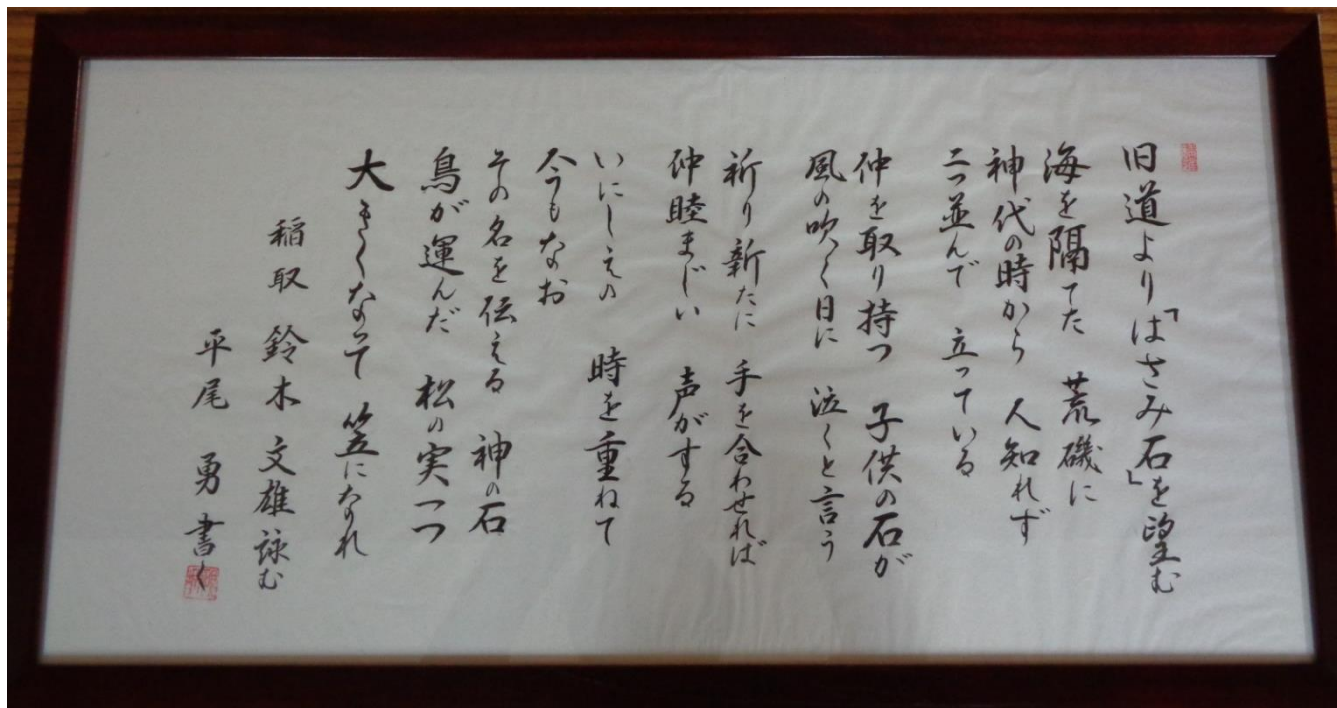 旧道より「はさみ石」を望む
海を隔てた 荒磯に
神代の時から 人知れず
二つ並んで 立っている
仲を取り持つ 子供の石が
風の吹く日に 泣くと言う
祈り新たに 手を合わせれば
仲睦まじい 声がする
いにしえの 時を重ねて
今もなお
その名を伝える 神の石
鳥が運んだ 松の実一つ
大きくなって 笠になれ
稲取 鈴木 文雄 詠む
平尾 勇 書く